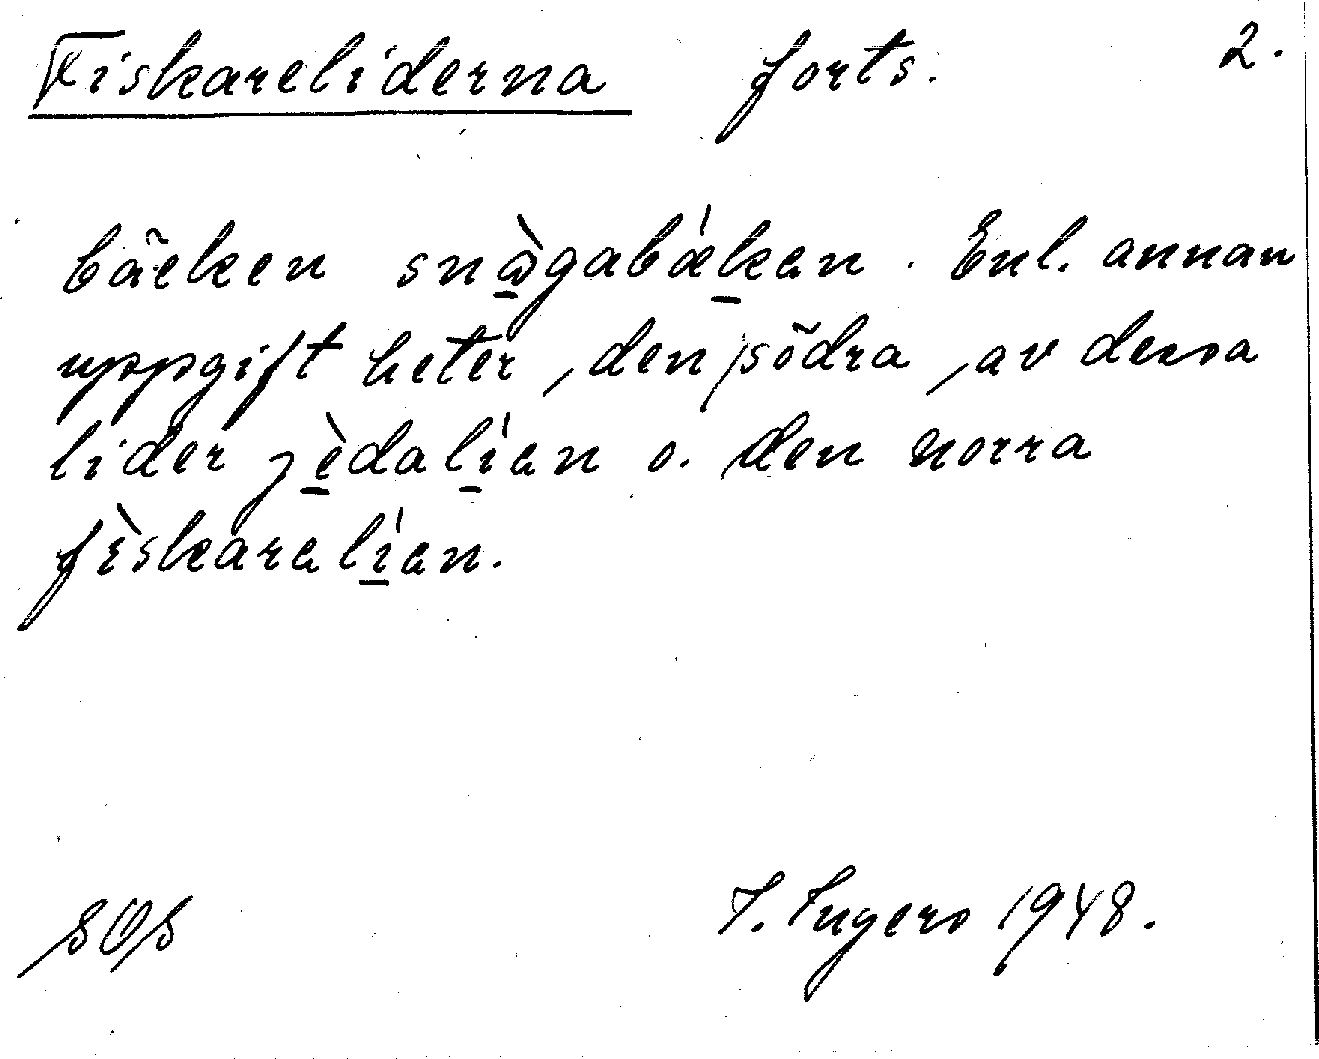 Fiskareliderna forts. 2.
bäcken snògabækan. Enl. annan
uppgift heter, den södra, av dessa
lider jèdalían o. den norra
fìskaralían.
SOS I. Ingers 1948.